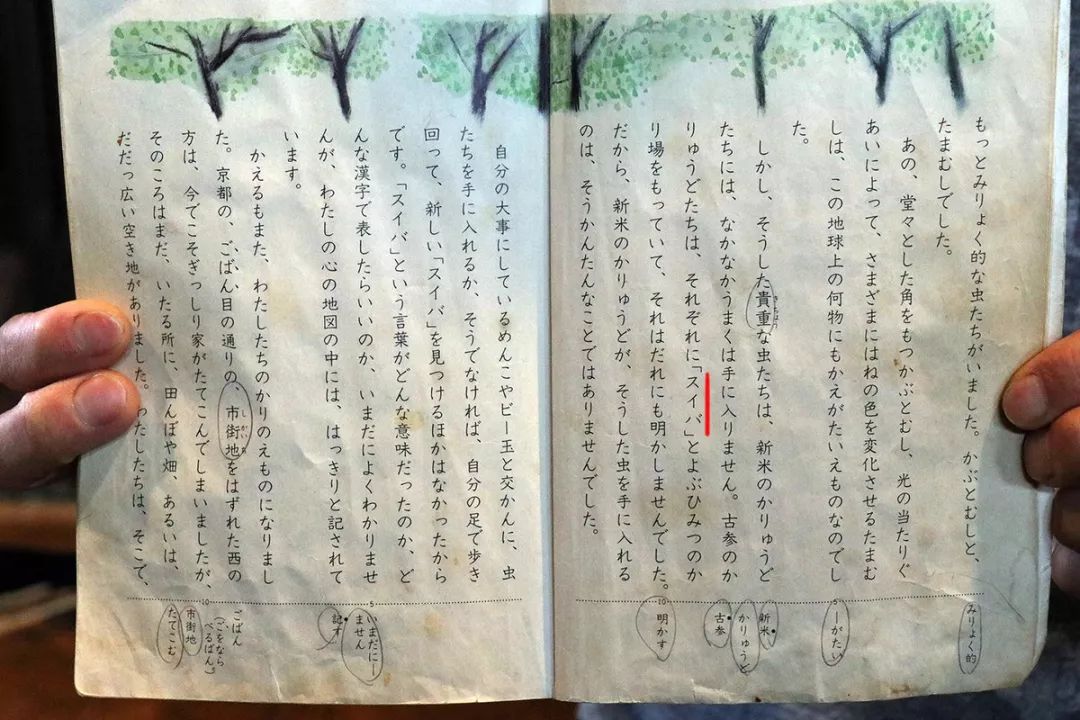 もっとみりょく的な虫たちがいました。かぶとむしと、
たまむしでした。
あの、堂々とした角をもつかぶとむし、光の当たりぐ
あいによって、さまざまにはねの色を変化させるたまむ
しは、この地球上の何物にもかえがたいえものなのでし
た。
しかし、そうした貴重な虫たちは、新米のかりゅうど
きちょう
たちには、なかなかうまくは手に入りません。古参のか
りゅうどたちは、それぞれに「スイバ」とよぶひみつのか
り場をもっていて、それはだれにも明かしませんでした。
だから、新米のかりゅうどが、そうした虫を手に入れる
のは、そうかんたんなことではありませんでした。
みりょく的
5
―がたい
新米
かりゅうど
古参
10
明かす
自分の大事にしているめんこやビー玉と交かんに、虫
たちを手に入れるか、そうでなければ、自分の足で歩き
回って、新しい「スイバ」を見つけるほかはなかったから
です。「スイバ」という言葉がどんな意味だったのか、ど
んな漢字で表したらいいのか、いまだによくわかりませ
んが、わたしの心の地図の中には、はっきりと記されて
います。
かえるもまた、わたしたちのかりのえものになりまし
た。京都の、ごばん目の通りの、市街地をはずれた西の
しがいち
方は、今でこそぎっしり家がたてこんでしまいましたが、
そのころはまだ、いたる所に、田んぼや畑、あるいは、
だだっ広い空き地がありました。わたしたちは、そこで、
5
いまだに―
ません
記す
ごばん
(ごをなら
べるばん。)
10
市街地
たてこむ